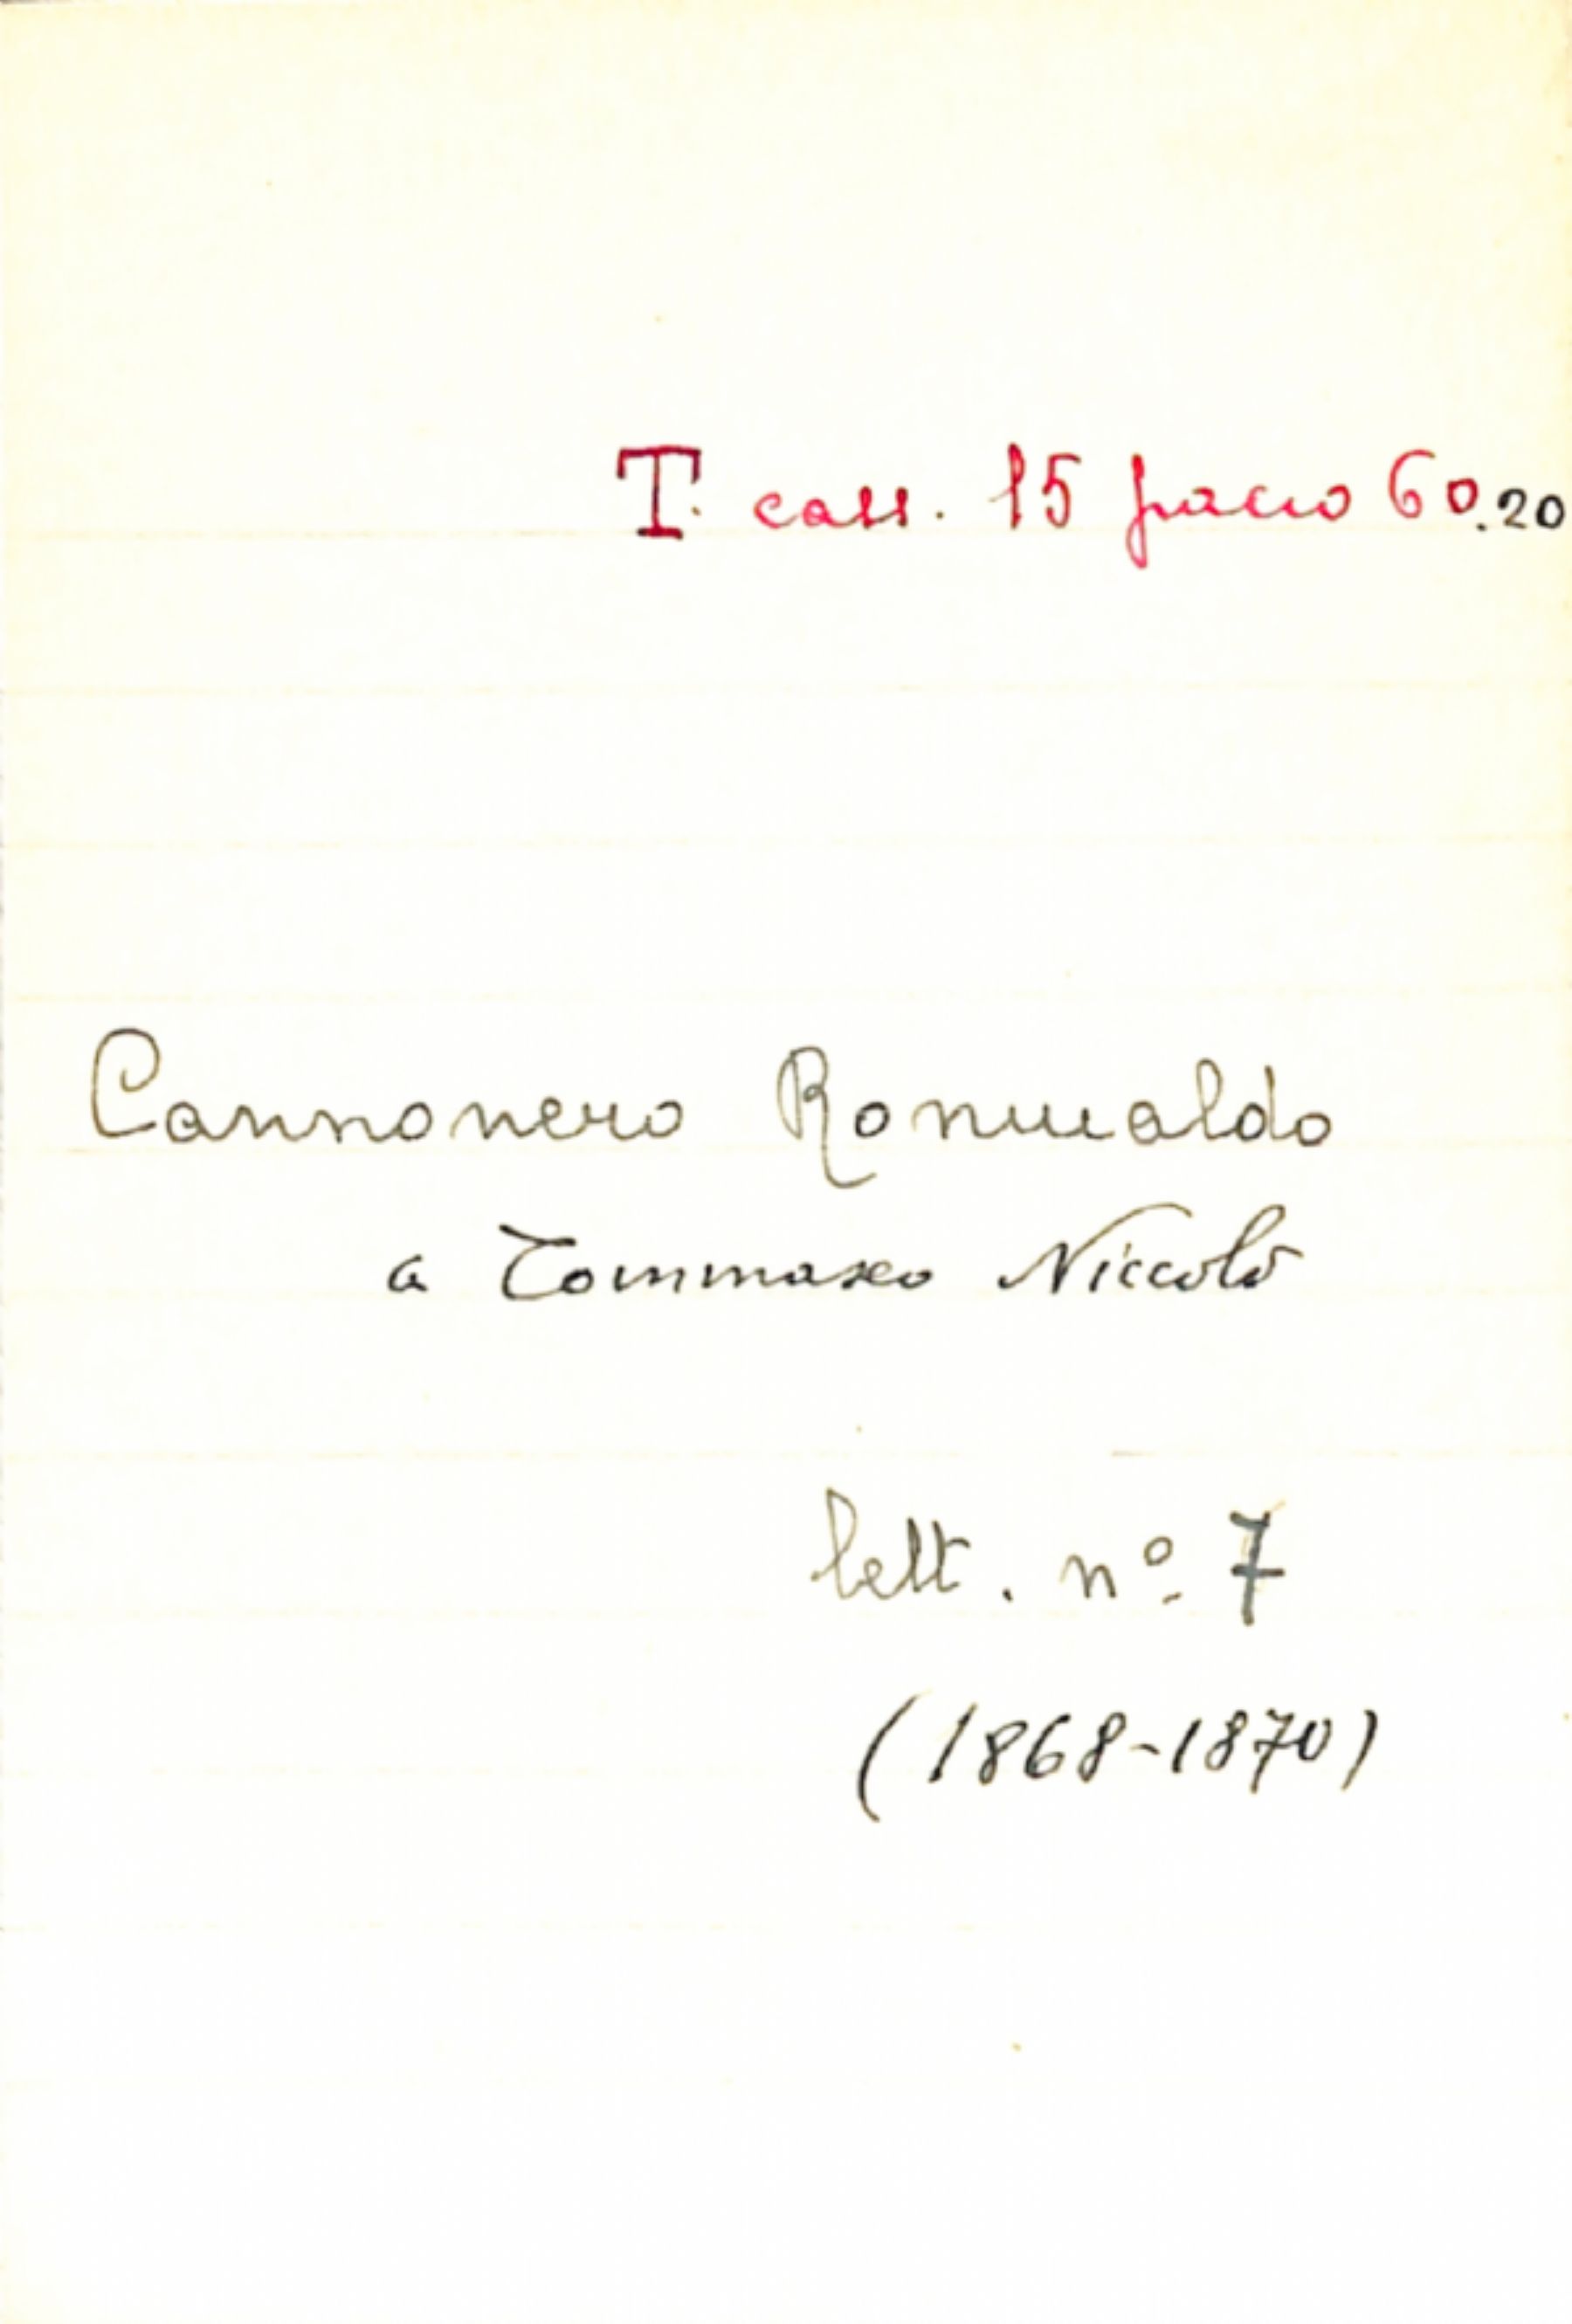 T. cass. 15 pacco 60.20
Cannonero Romualdo
a Tommaseo Niccolò
lett. nº 7
(1868-1870)